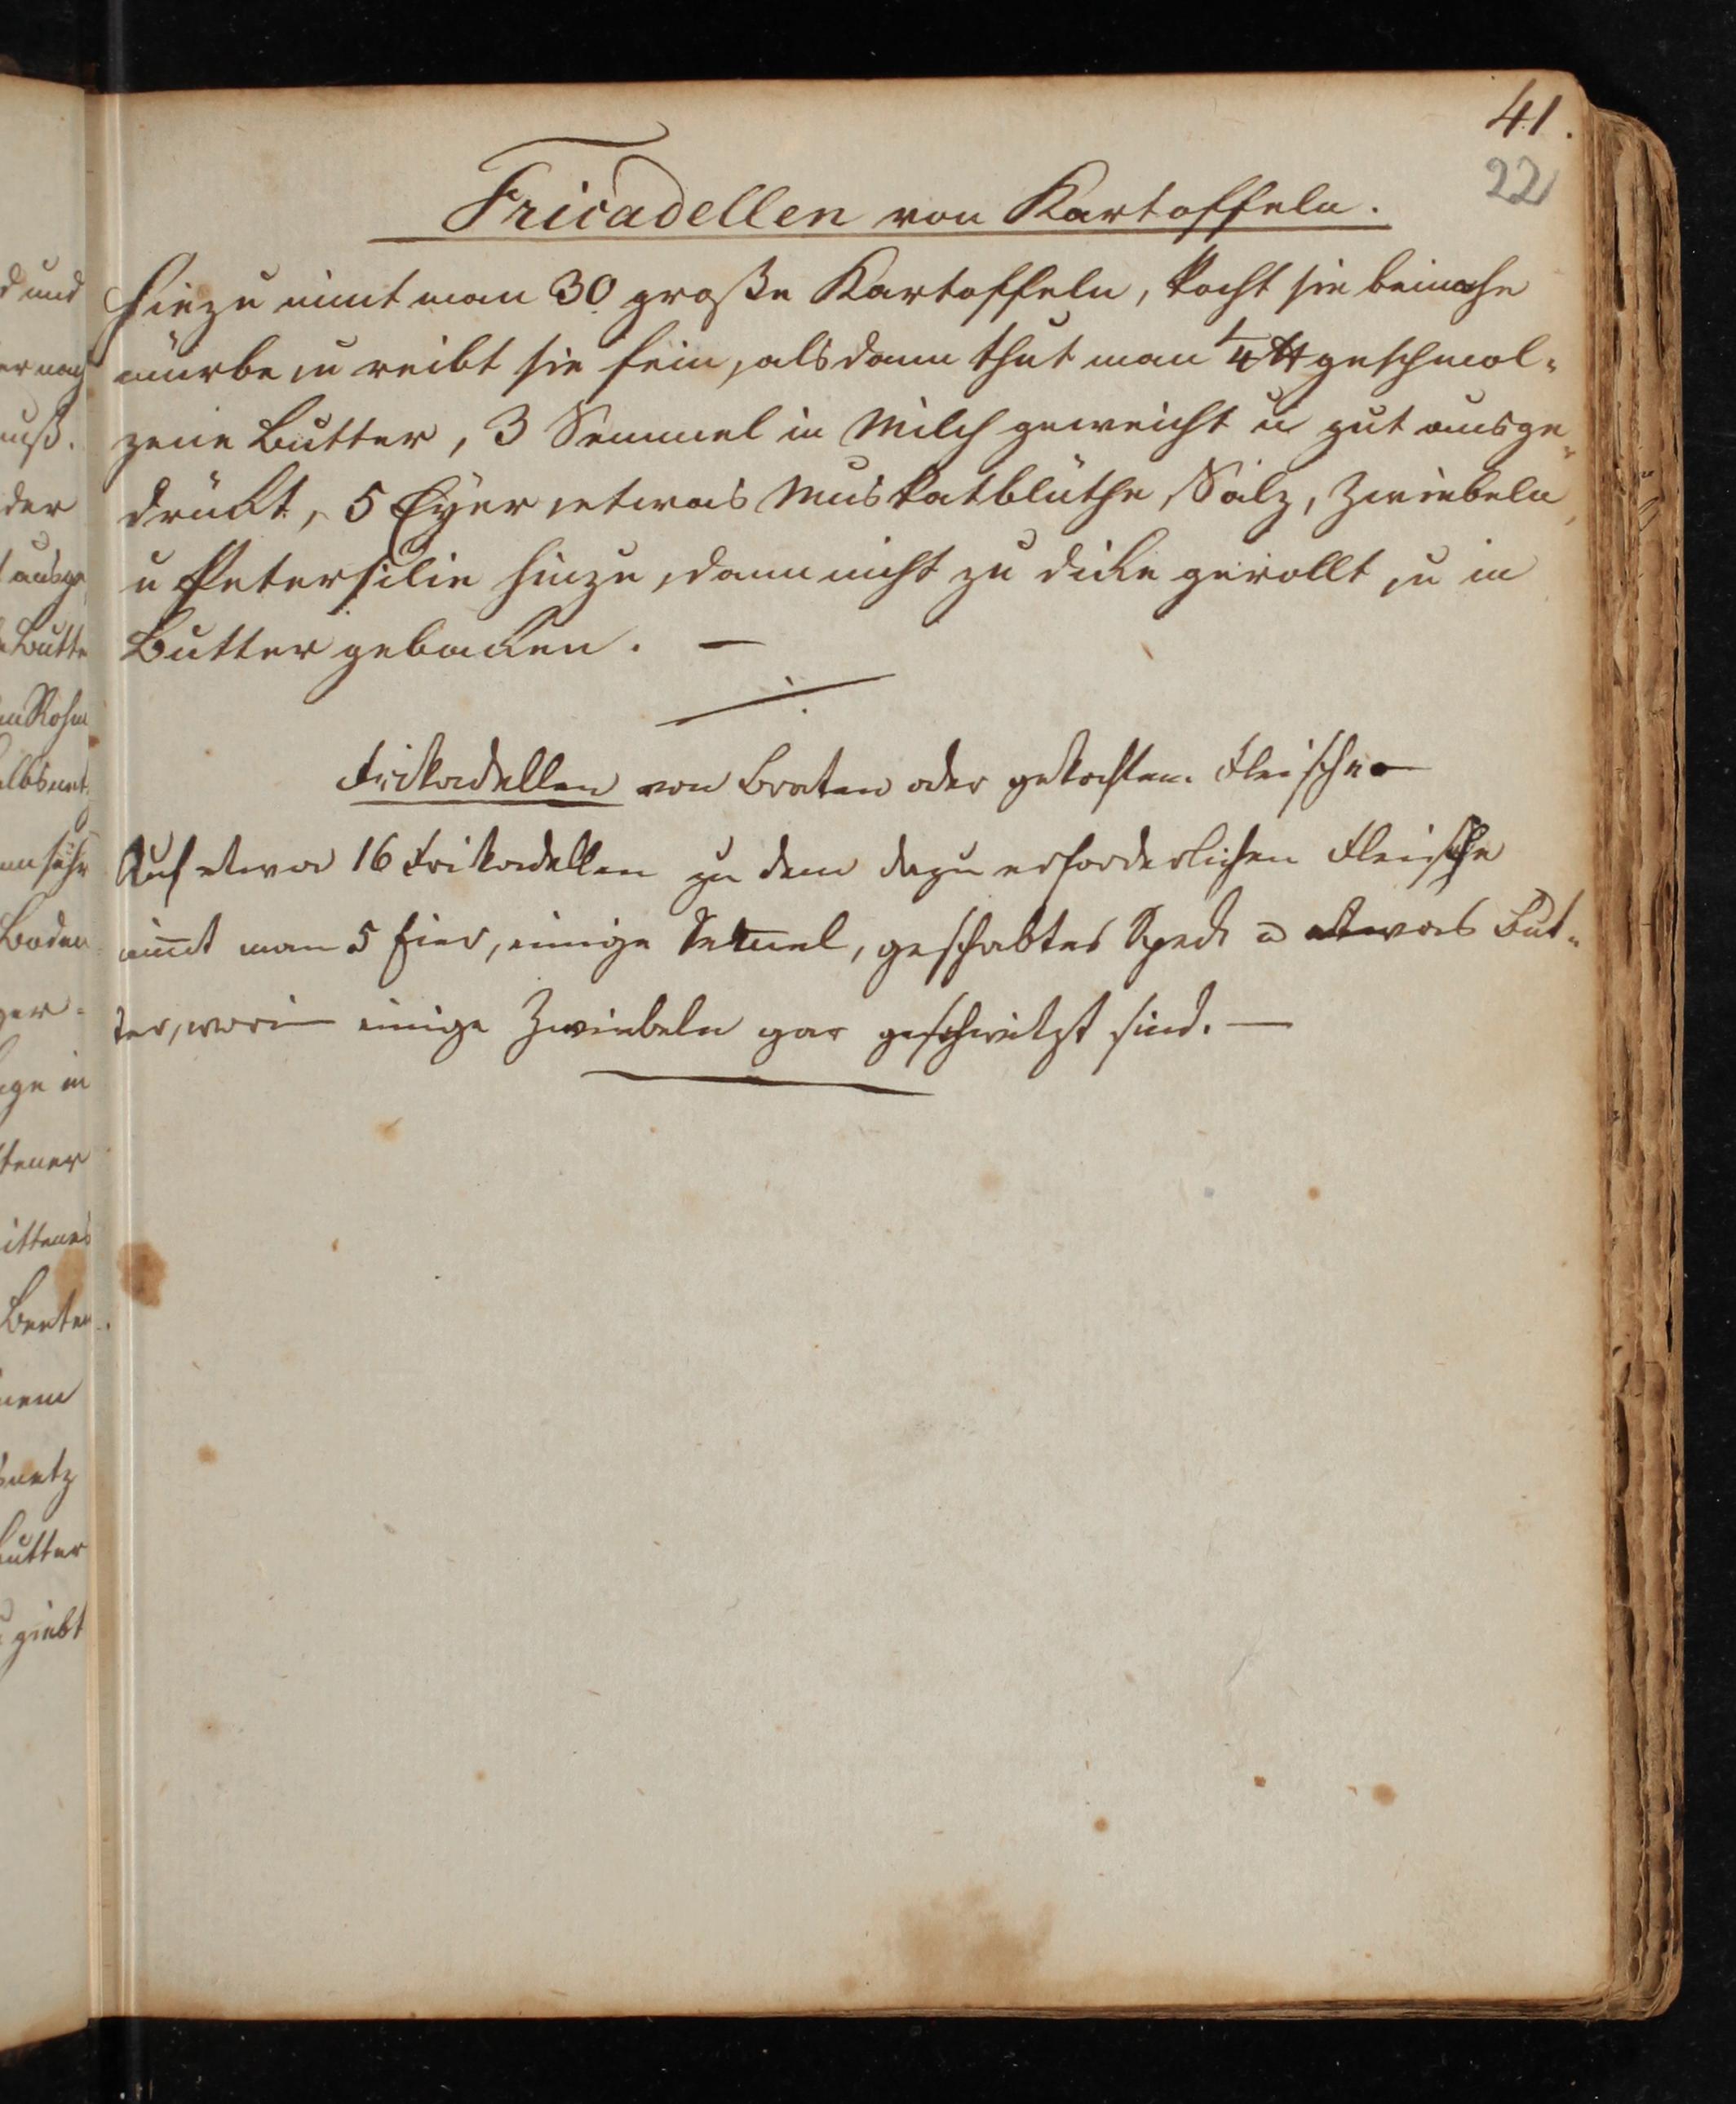 41.
22
Fricadellen von Kartoffeln.
Hiezu nimt man 30 große Kartoffeln, kocht sie beinahe
mürbe, u reibt sie fein, alsdann thut man 1/4 ℔ geschmol-
zene Butter, 3 Semmel in Milch geweicht u gut ausge-
drückt, 5 Eyer, etwas Muskatblüthe, Salz, Zwiebeln,
u Petersilie hinzu, dann nicht zu dicke gerollt, u in
Butter gebacken. —
Frikadellen von Braten oder gekochtem Fleische
Auf etwa 16 Frikadellen zu dem dazu erforderlichen Fleische
nim̅t man 5 Eier, einige Sem̅el, geschabtes Speck u etwas But-
ter, worin einige Zwiebeln gar geschwitzt sind. —
d und
der
ausge
Butte
Rohm
Boden
ge in
Butter
giebt